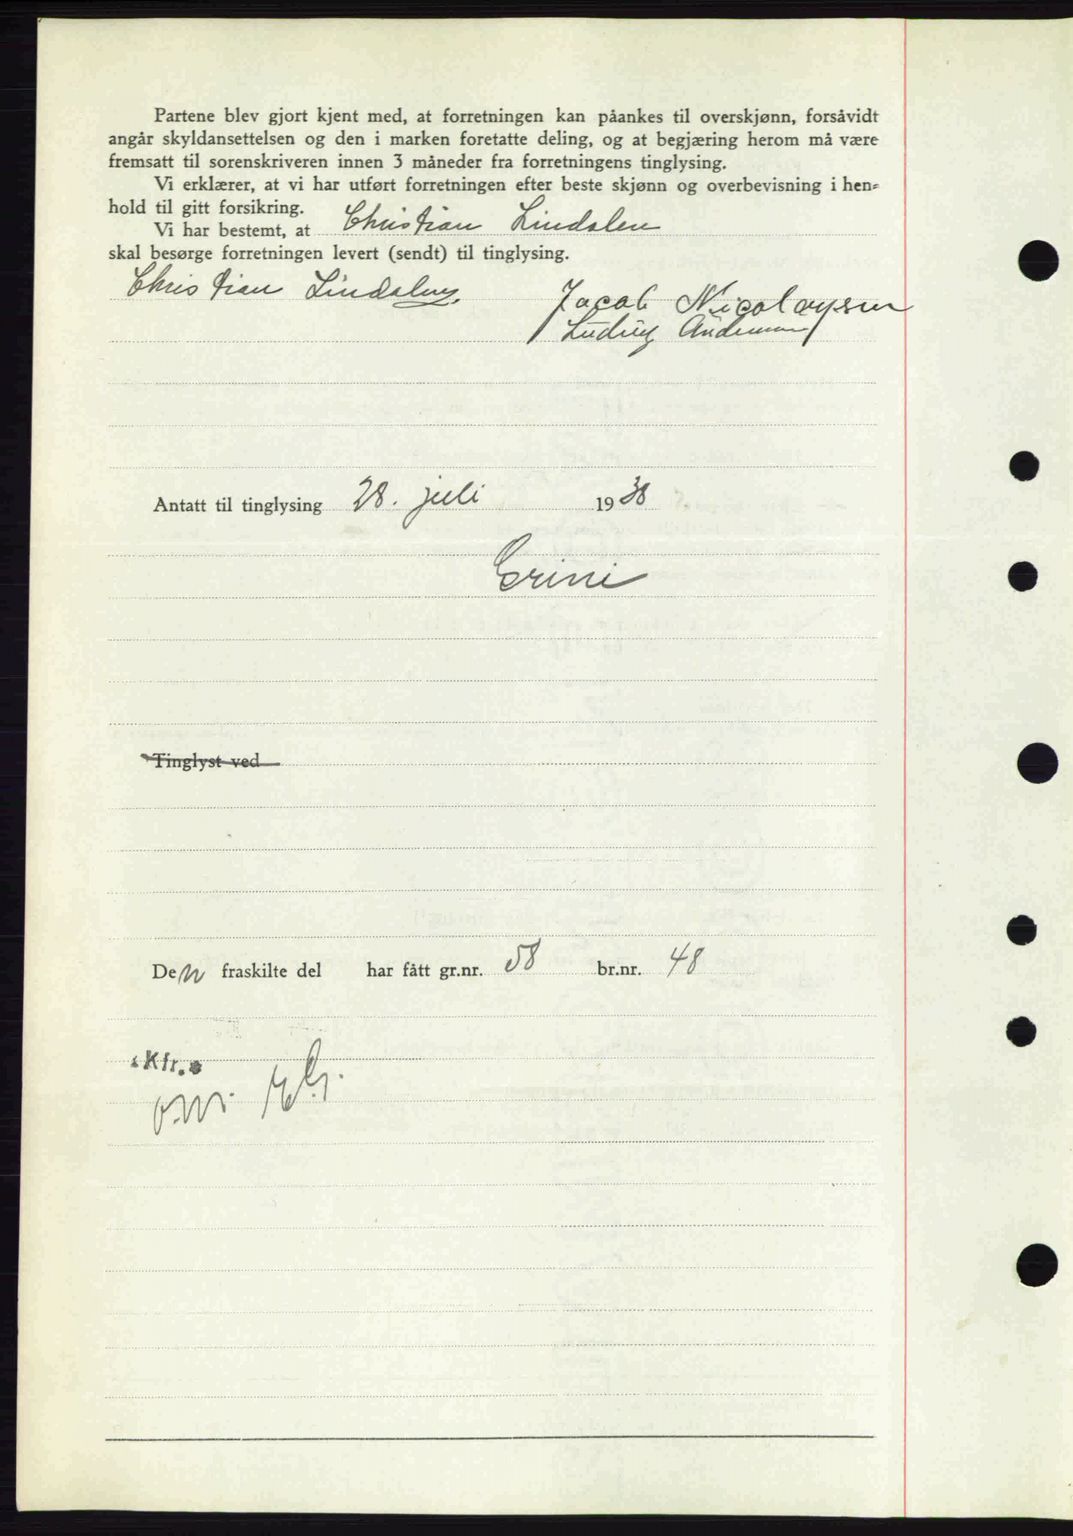 Partene blev gjort kjent med, at forretningen kan påankes til overskjønn, forsåvidt
angår skyldansettelsen og den i marken foretatte deling, og at begjæring herom må være
fremsatt til sorenskriveren innen 3 måneder fra forretningens tinglysing.
Vi erklærer, at vi har utført forretningen efter beste skjønn og overbevisning i hen-
hold til gitt forsikring.
Vi har bestemt, at Christian Lindalen
skal besørge forretningen levert (sendt) til tinglysing.
Christian Lindalen Jacob Nicolaysen
Ludvig Andersen
Antatt til tinglysing 28. juli 1938
Grini
Tinglyst ved
Den fraskilte del har fått gr.nr. 58 br.nr. 48
Kfr.